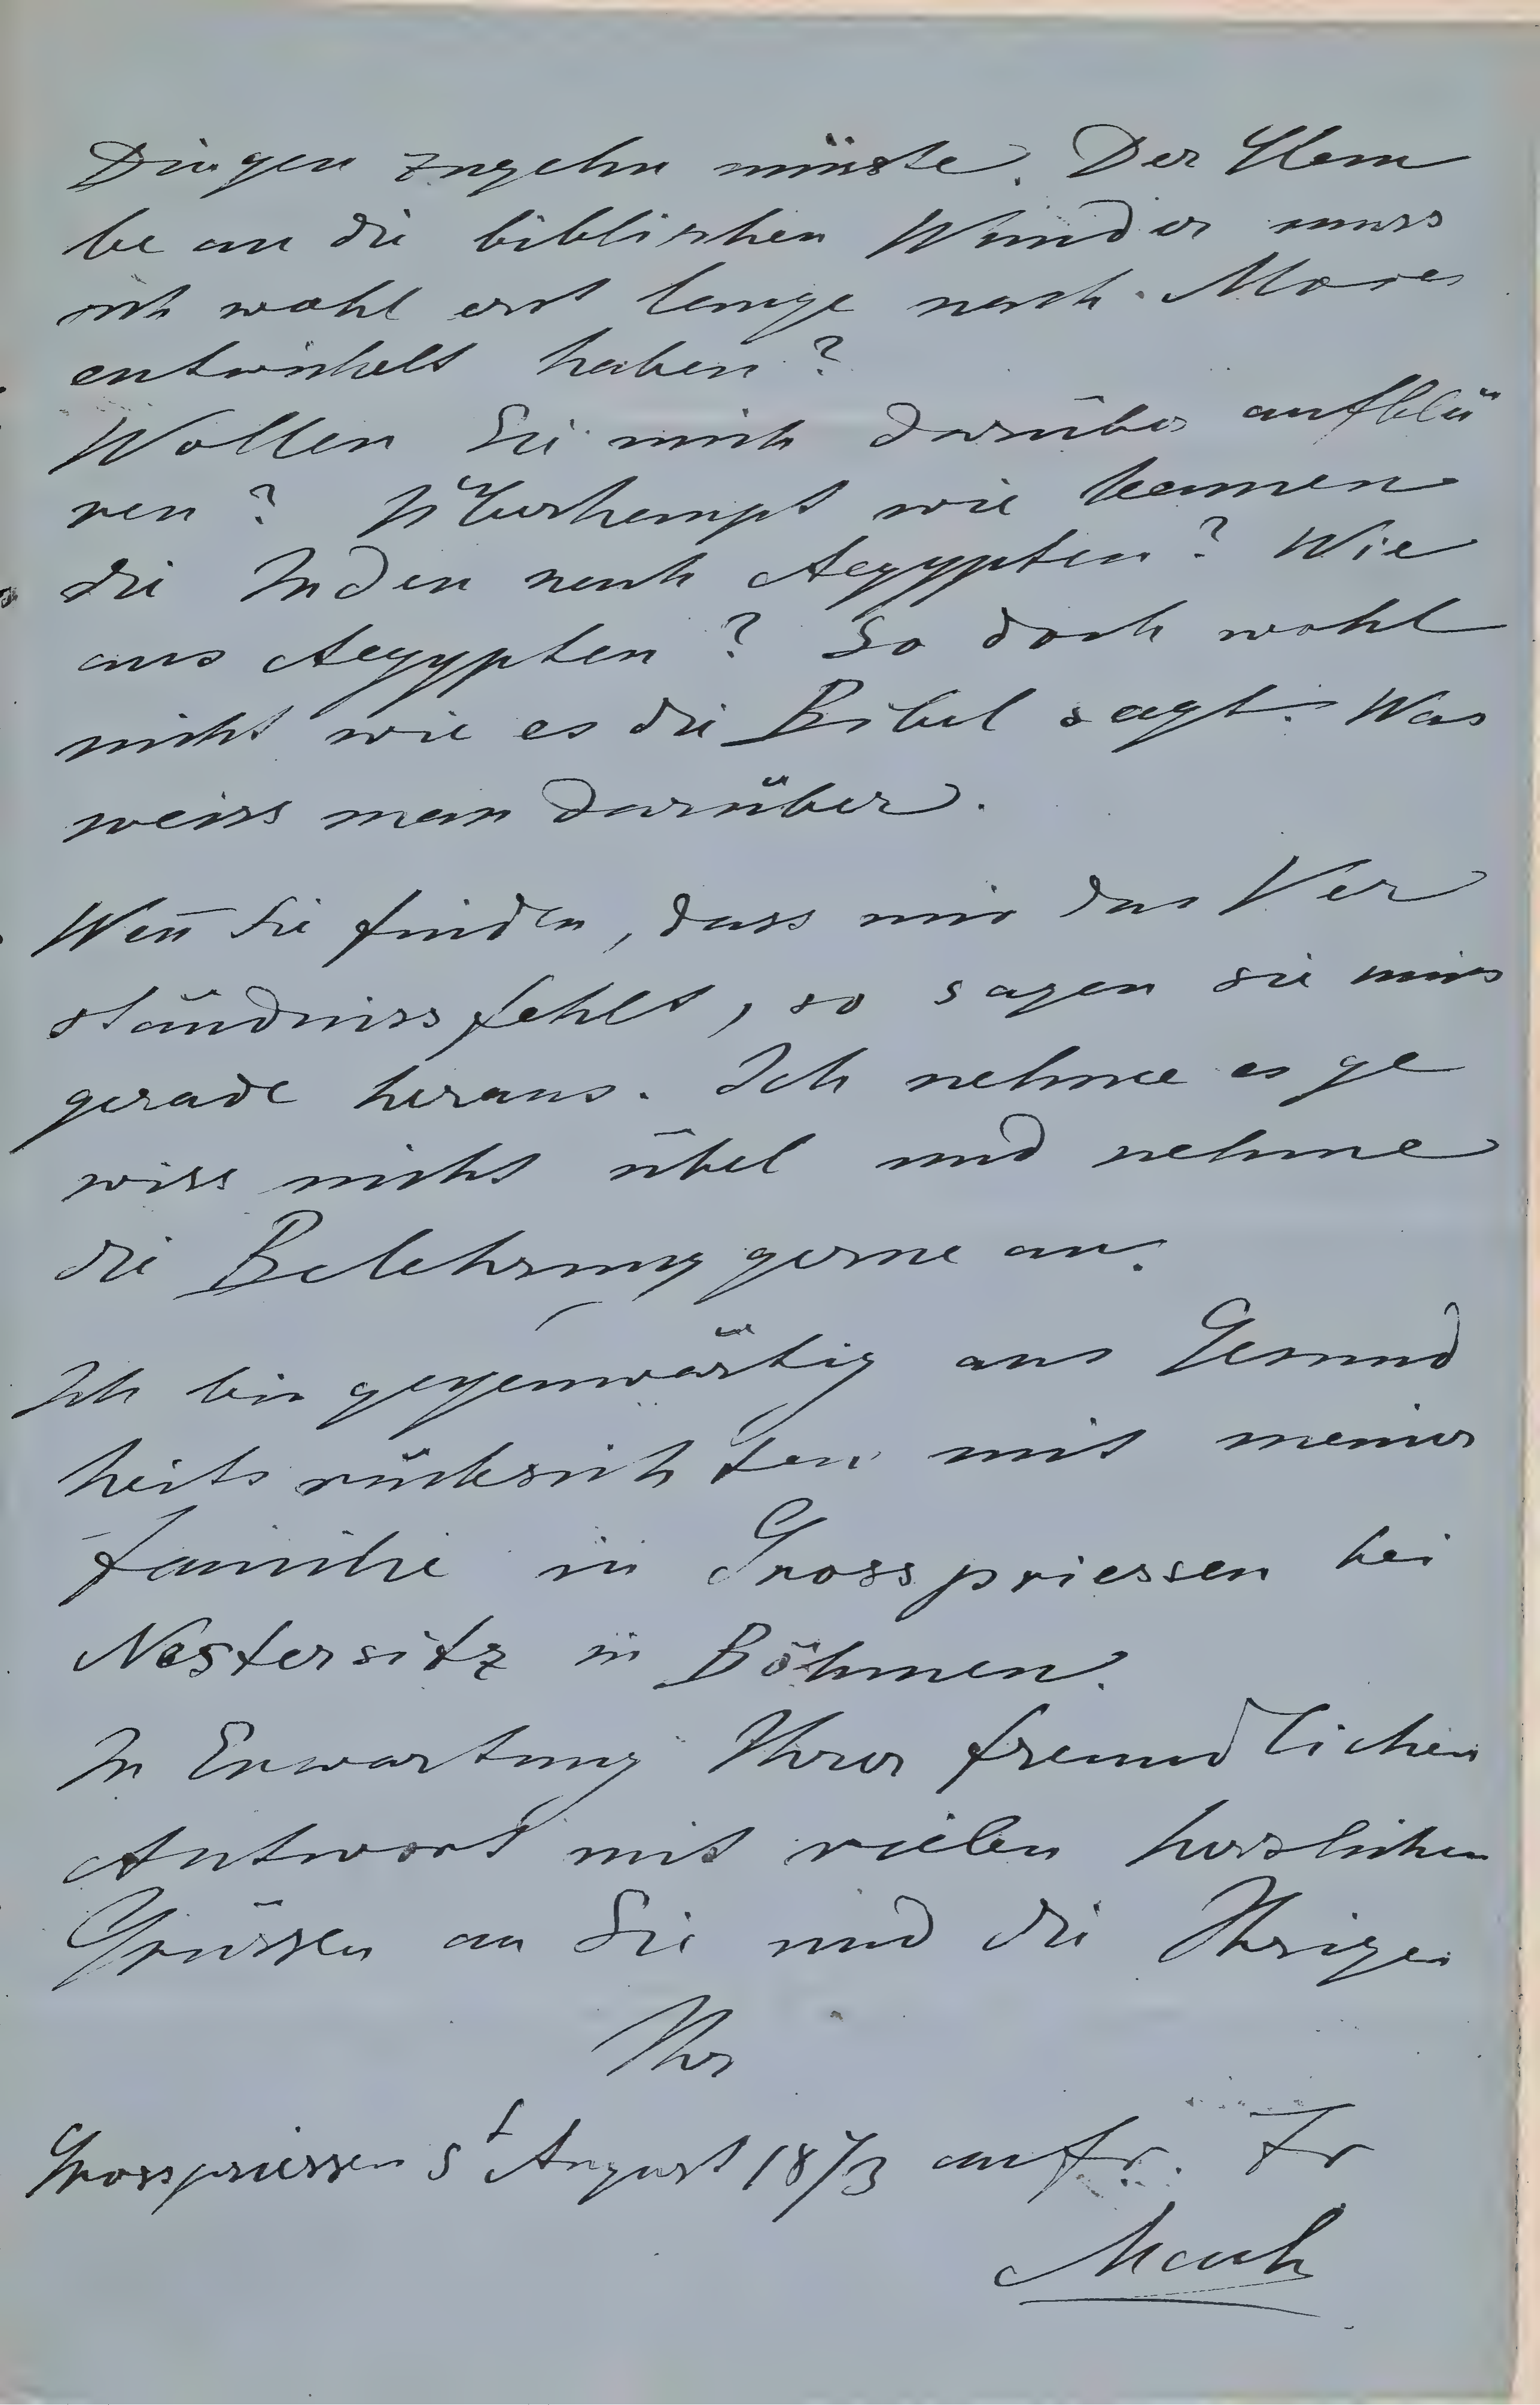 Dingen zugehn müsste. Der Glau
be an die biblischen Wunder muss
sich wohl erst lange nach Moses
entwickelt haben?
Wollen Sie mich darüber aufklä
ren? Überhaupt wie kamen
die Juden nach Aegypten? Wie
aus Aegypten? So doch wohl
nicht wie es die Bibel sagt. Was
weiss man darüber.
Weñ Sie finden, dass mir das Ver
ständniss fehlt, so sagen sie mirs
gerade heraus. Ich nehme es ge
wiss nicht übel und nehme
die Belehrung gerne an.
Ich bin gegenwärtig aus Gesund
heitsrücksichten mit meiner
Familie in Grosspriessen bei
Nestersitz in Böhmen.
In Erwartung Ihrer freundlichen
Antwort mit vielen herzlichen
Grüssen an Sie und die Ihrigen
Ihr
Grosspriessen 5t August 1873 aufr. Fr
Mach